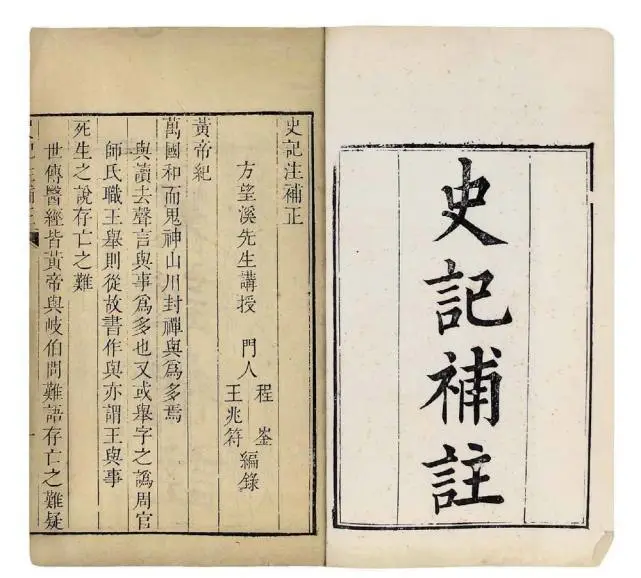 史記補註
史記注補正
方望溪先生講授　門人　程崟　王兆符　編錄
黃帝紀
萬國和而鬼神山川封禪與爲多焉
與讀去聲言與事爲多也又或舉字之譌周官
師氏職王舉則從故書作與亦謂王與事
死生之說存亡之難
世傳醫經皆黃帝與岐伯問難語存亡之難疑